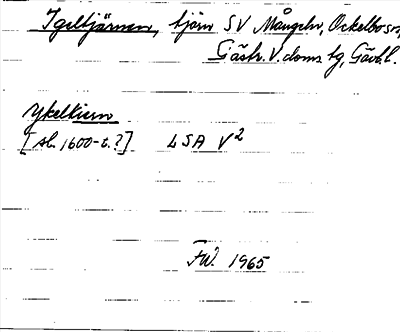 Igeltjärnen, tjärn SV Mångeln, Ockelbo sn,
Gästr. V. doms. tg, Gävl. l.
Ykelkiern
[sl. 1600-t.?] LSA V²
FW. 1965